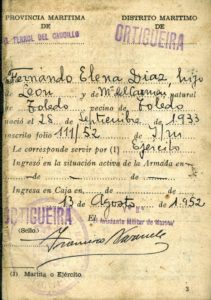 PROVINCIA MARITIMA DE
EL FERROL DEL CAUDILLO
DISTRITO MARITIMO DE
ORTIGUEIRA
Fernando Elena Diaz, hijo
de Leon y de Mª del Carmen natural
de Toledo vecino de Toledo
nació el 28 de Septiembre de 1933
inscrito folio 111/52 de
Le corresponde servir por (1) Ejército
Ingresó en la situación activa de la Armada en
de de
Ingresa en Caja en
13 de Agosto de 1.952
El Ayudante Militar de Marina
ORTIGUEIRA
(Sello)
(1) Marina o Ejército.
3